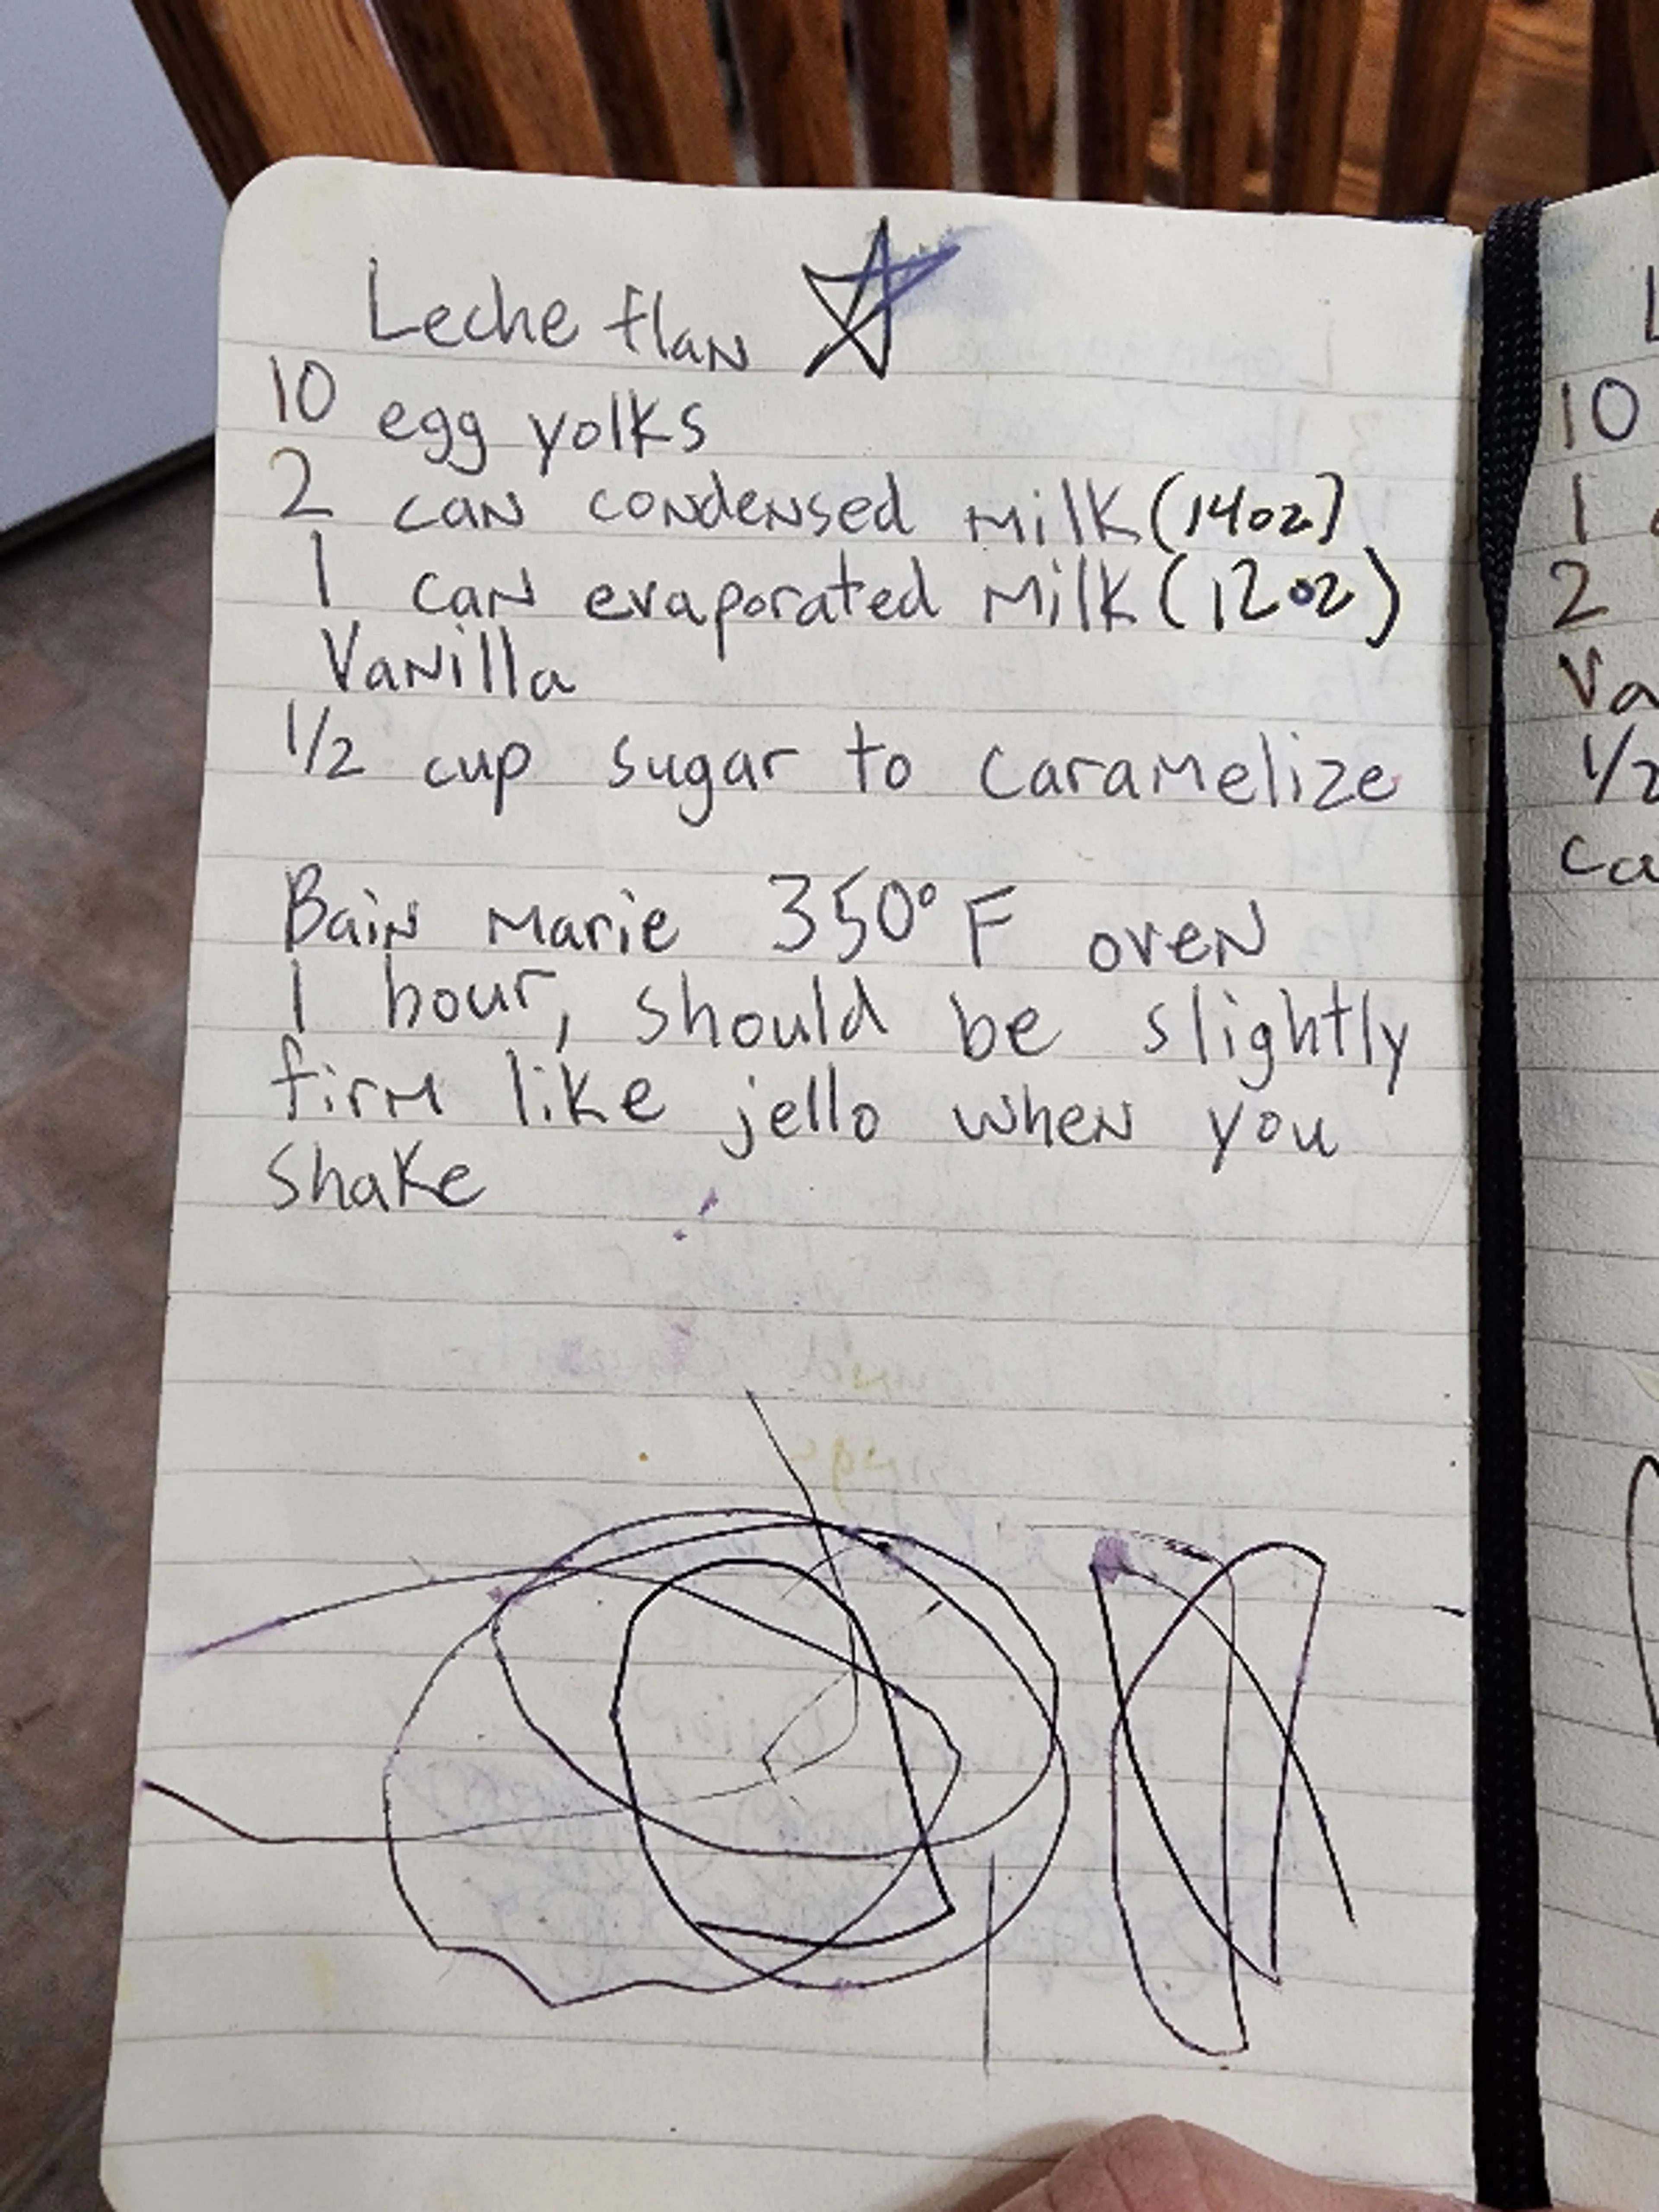 Leche flan
10 egg yolks
2 can condensed milk (14oz)
1 can evaporated milk (12oz)
Vanilla
1/2 cup sugar to caramelize
Bain marie 350° F oven
1 hour, should be slightly
firm like jello when you
shake
10
1
2
Va
1/2
Ca